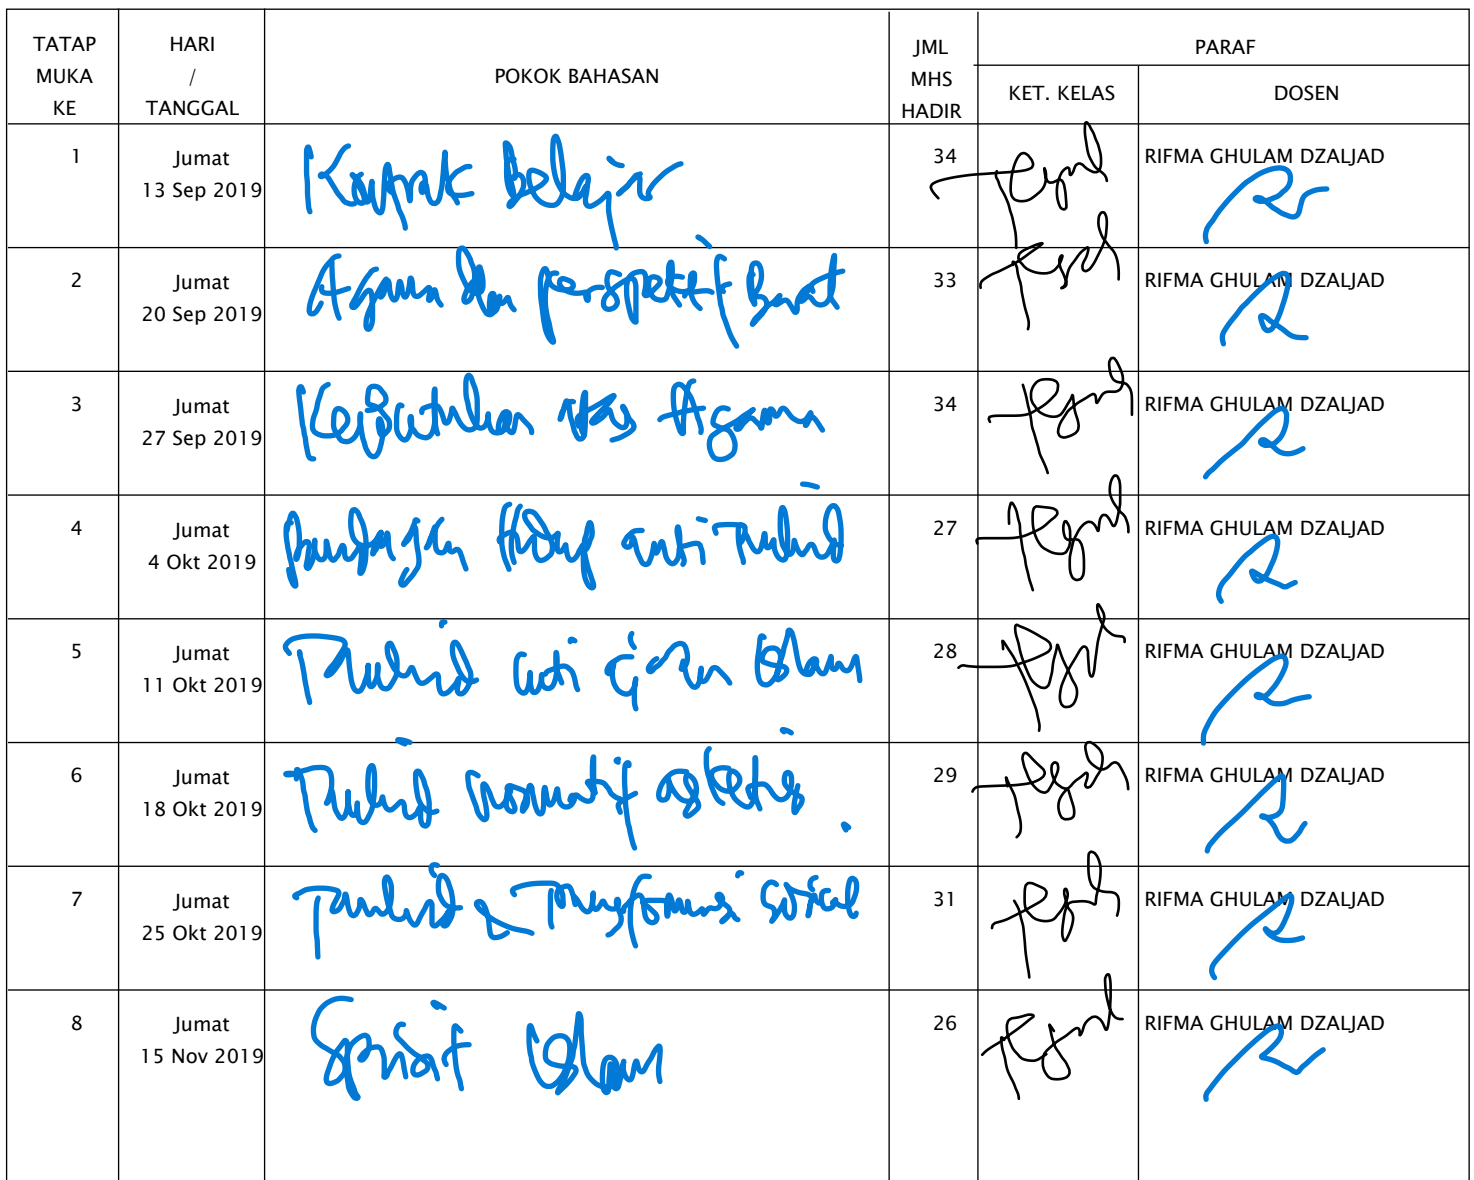 TATAP MUKA KE HARI / TANGGAL POKOK BAHASAN JML MHS HADIR PARAF
KET. KELAS DOSEN
1 Jumat 13 Sep 2019 Kontrak Belajar 34 RIFMA GHULAM DZALJAD
2 Jumat 20 Sep 2019 Agama dan perspektif Barat 33 RIFMA GHULAM DZALJAD
3 Jumat 27 Sep 2019 Kebutuhan atas Agama 34 RIFMA GHULAM DZALJAD
4 Jumat 4 Okt 2019 Pandangan Hidup anti Tauhid 27 RIFMA GHULAM DZALJAD
5 Jumat 11 Okt 2019 Tauhid inti ajaran Islam 28 RIFMA GHULAM DZALJAD
6 Jumat 18 Okt 2019 Tauhid normatif asketis. 29 RIFMA GHULAM DZALJAD
7 Jumat 25 Okt 2019 Tauhid & Transformasi Sosial 31 RIFMA GHULAM DZALJAD
8 Jumat 15 Nov 2019 Spirit Islam 26 RIFMA GHULAM DZALJAD